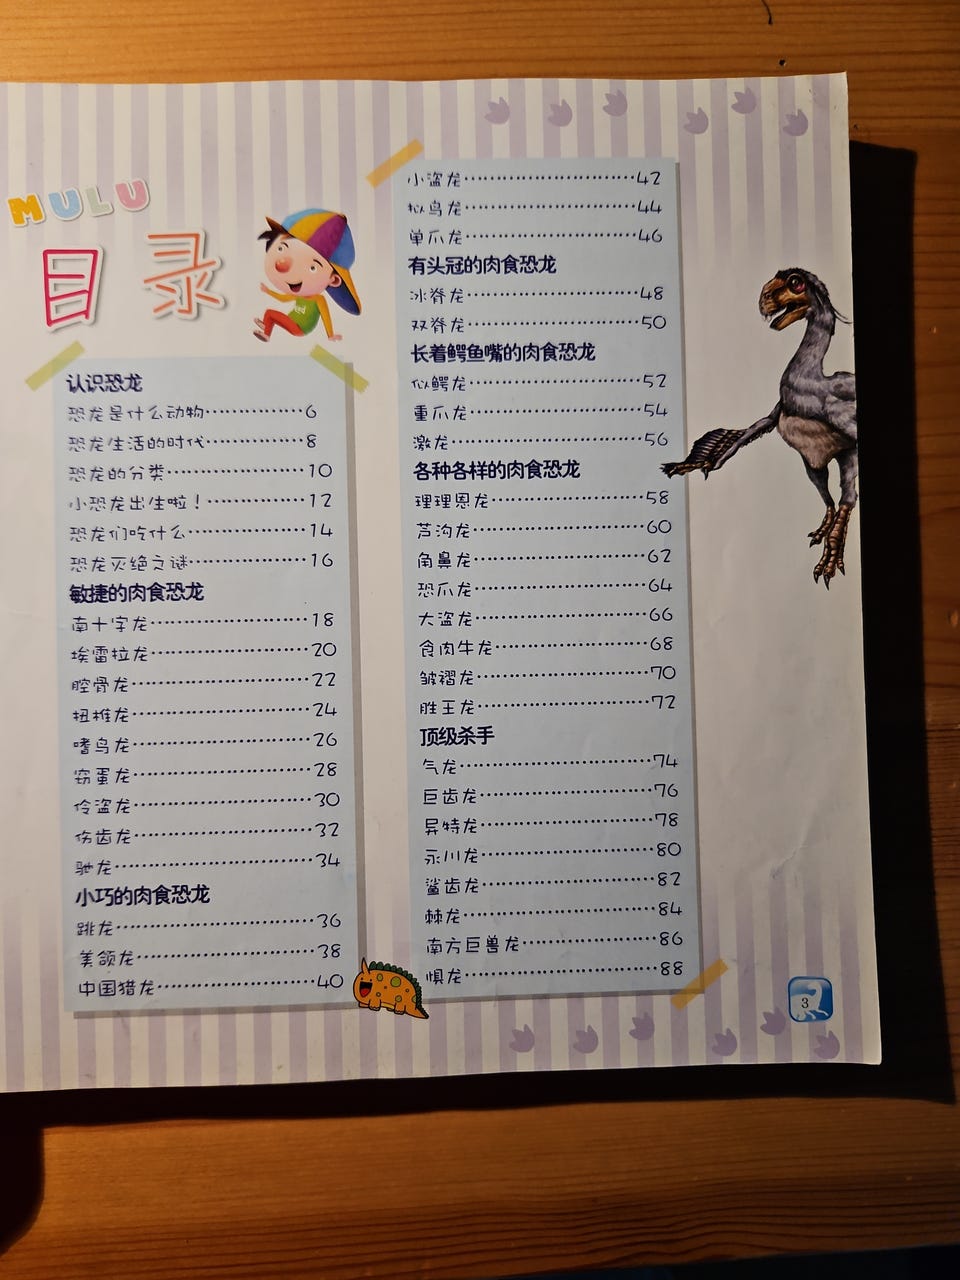 MULU
目录
认识恐龙
恐龙是什么动物……………6
恐龙生活的时代……………8
恐龙的分类……………10
小恐龙出生啦！……………12
恐龙们吃什么……………14
恐龙灭绝之谜……………16
敏捷的肉食恐龙
南十字龙……………18
埃雷拉龙……………20
腔骨龙……………22
扭椎龙……………24
嗜鸟龙……………26
窃蛋龙……………28
伶盗龙……………30
伤齿龙……………32
驰龙……………34
小巧的肉食恐龙
跳龙……………36
美颌龙……………38
中国猎龙……………40
小盗龙……………42
拟鸟龙……………44
单爪龙……………46
有头冠的肉食恐龙
冰脊龙……………48
双脊龙……………50
长着鳄鱼嘴的肉食恐龙
似鳄龙……………52
重爪龙……………54
激龙……………56
各种各样的肉食恐龙
理理恩龙……………58
芦沟龙……………60
角鼻龙……………62
恐爪龙……………64
大盗龙……………66
食肉牛龙……………68
皱褶龙……………70
胜王龙……………72
顶级杀手
气龙……………74
巨齿龙……………76
异特龙……………78
永川龙……………80
鲨齿龙……………82
棘龙……………84
南方巨兽龙……………86
惧龙……………88
3